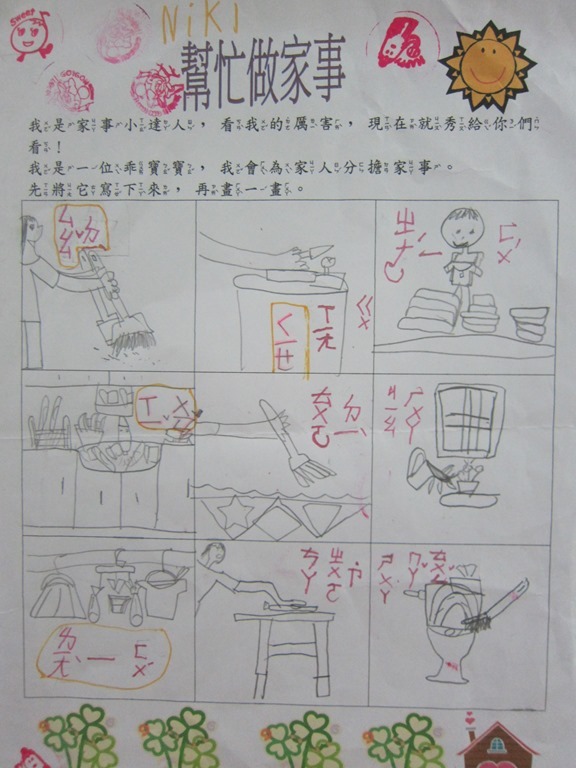 NiKI
幫忙做家事
我是家事小達人，看我的厲害，現在就秀給你們
看！
我是一位乖寶寶，我會為家人分擔家事。
先將它寫下來，再畫一畫。
ㄙㄠˇ ㄉㄧˋ
ㄑㄧㄝ ㄒㄧㄤ ㄍㄨ
ㄧ ㄈㄨˊ
ㄒㄧˇ
ㄊㄨㄛ ㄉㄧˋ
ㄐㄧㄠ ㄏㄨㄚ
ㄌㄧㄤˋ ㄧ ㄈㄨˊ
ㄘㄚ ㄓㄨㄛ ㄗ˙
ㄕㄨㄚ ㄇㄚˇ